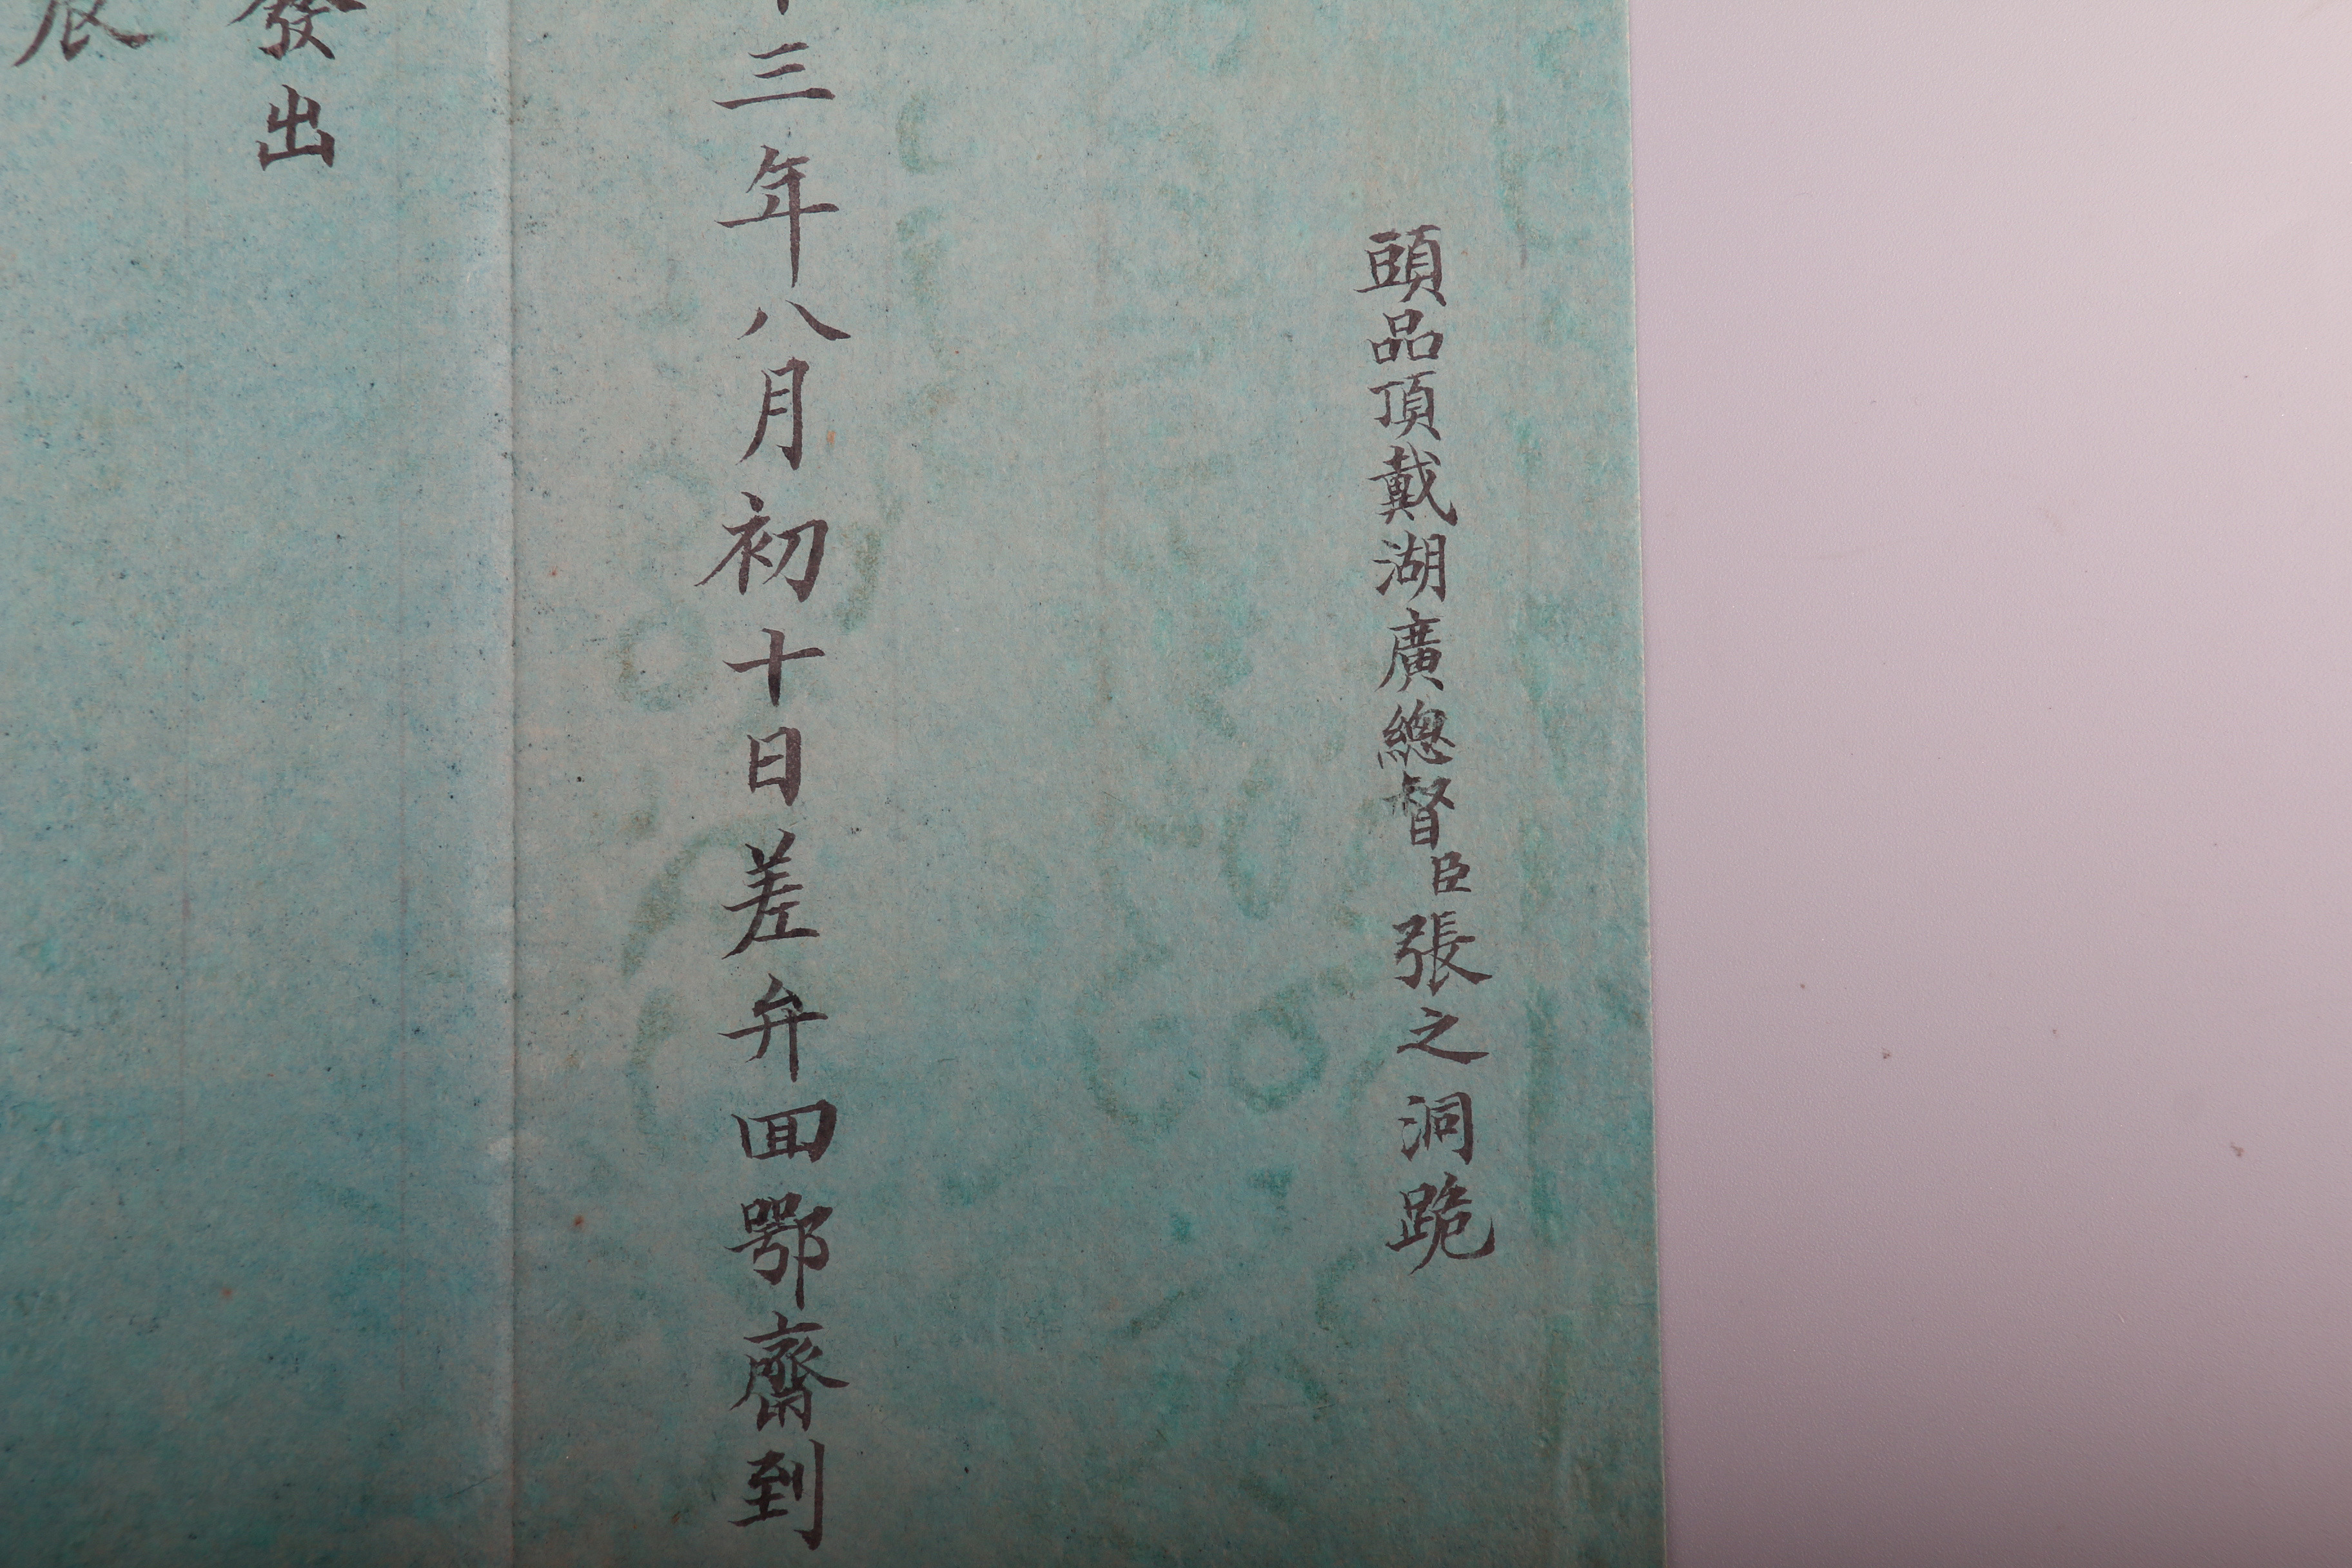 頭品頂戴湖廣總督臣張之洞跪
三年八月初十日差弁回鄂齎到
發出